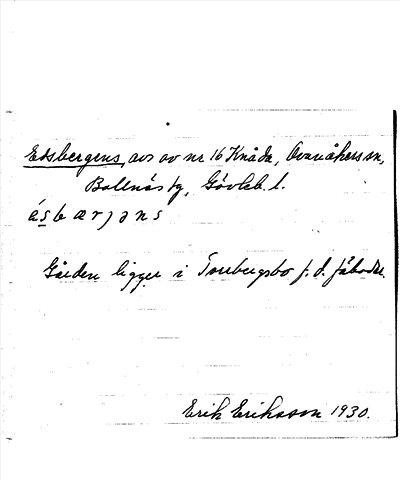 Edsbergens, avs av nr 16 Knåda, Ovanåkers sn,
Bollnäs tg, Gävleb. l.
ásbærjəns
Gården ligger i Torsbergsbo f. d. fäbodar.
Erik Eriksson 1930.